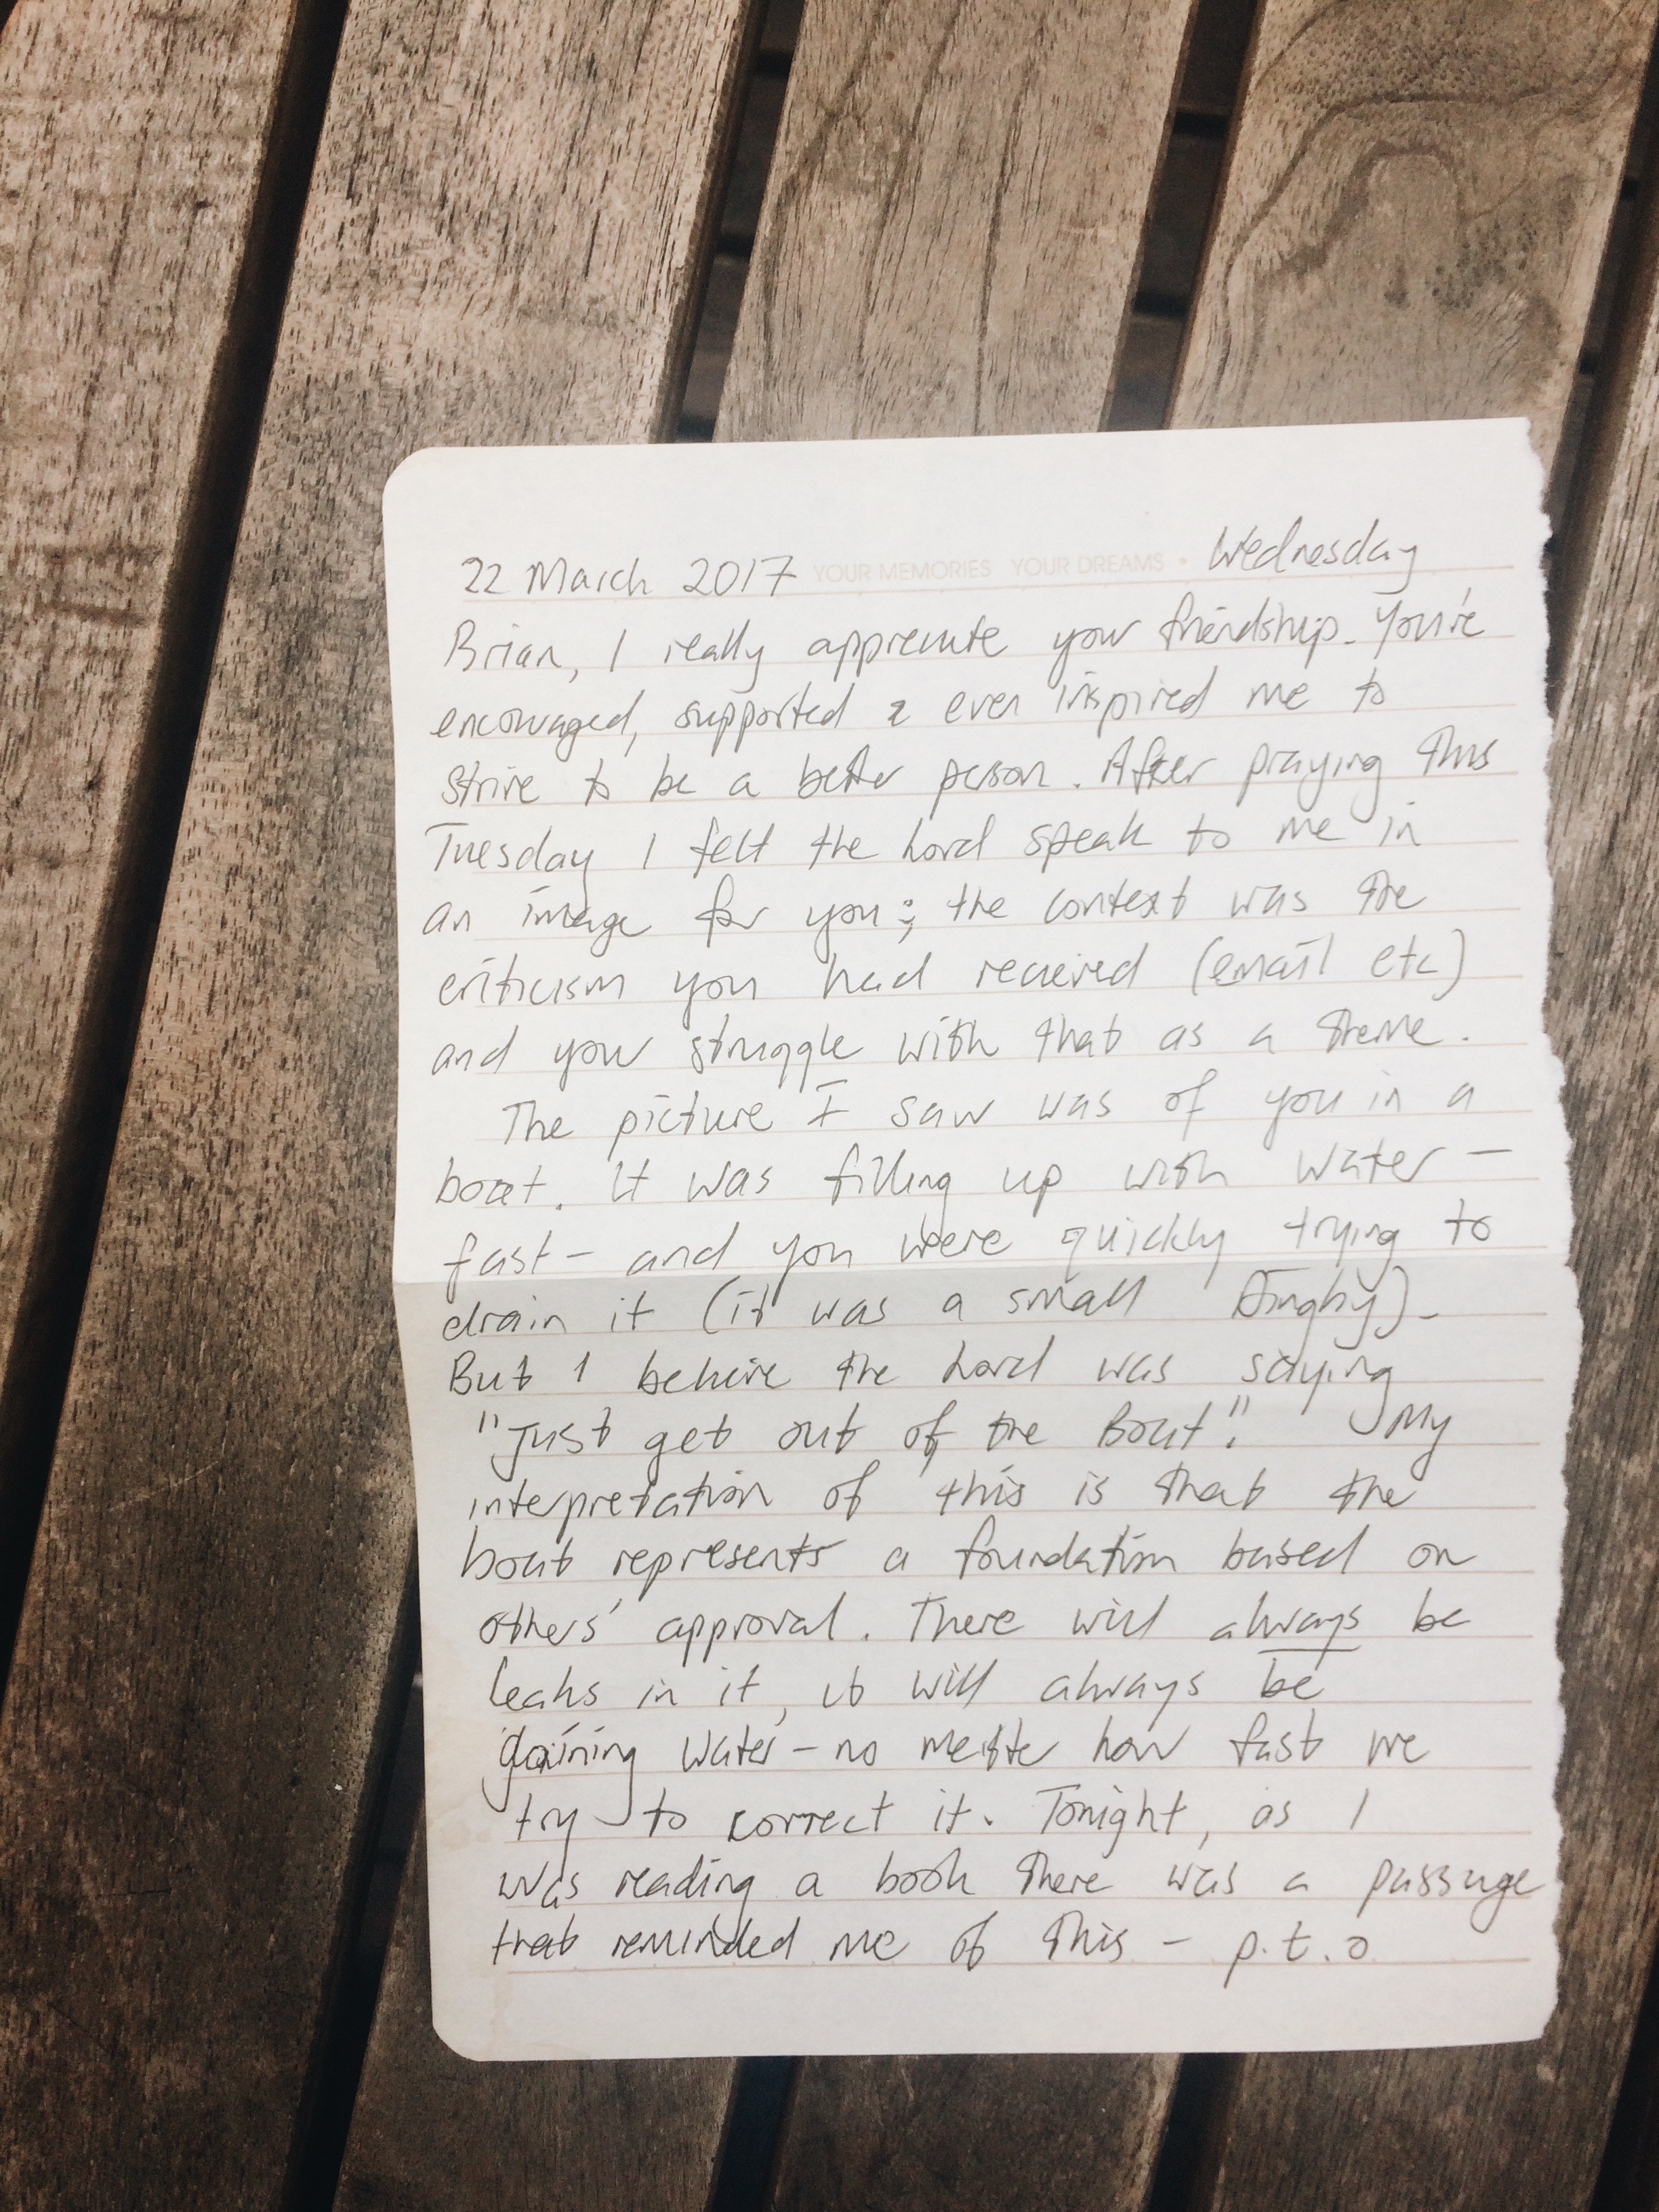 22 March 2017 YOUR MEMORIES YOUR DREAMS • Wednesday
Brian, I really appreciate your friendship. You've
encouraged, supported & even inspired me to
strive to be a better person. After praying this
Tuesday I felt the Lord speak to me in
an image for you; the context was the
criticism you had recieved (email etc)
and your struggle with that as a theme.
The picture I saw was of you in a
boat. It was filling up with water -
fast - and you were quickly trying to
drain it (it was a small Dinghy).
But I believe the Lord was saying
"Just get out of the Boat". My
interpretation of this is that the
boat represents a foundation based on
others' approval. There will always be
leaks in it, it will always be
gaining water - no matter how fast we
try to correct it. Tonight, as I
was reading a book there was a passage
that reminded me of this - p.t.o